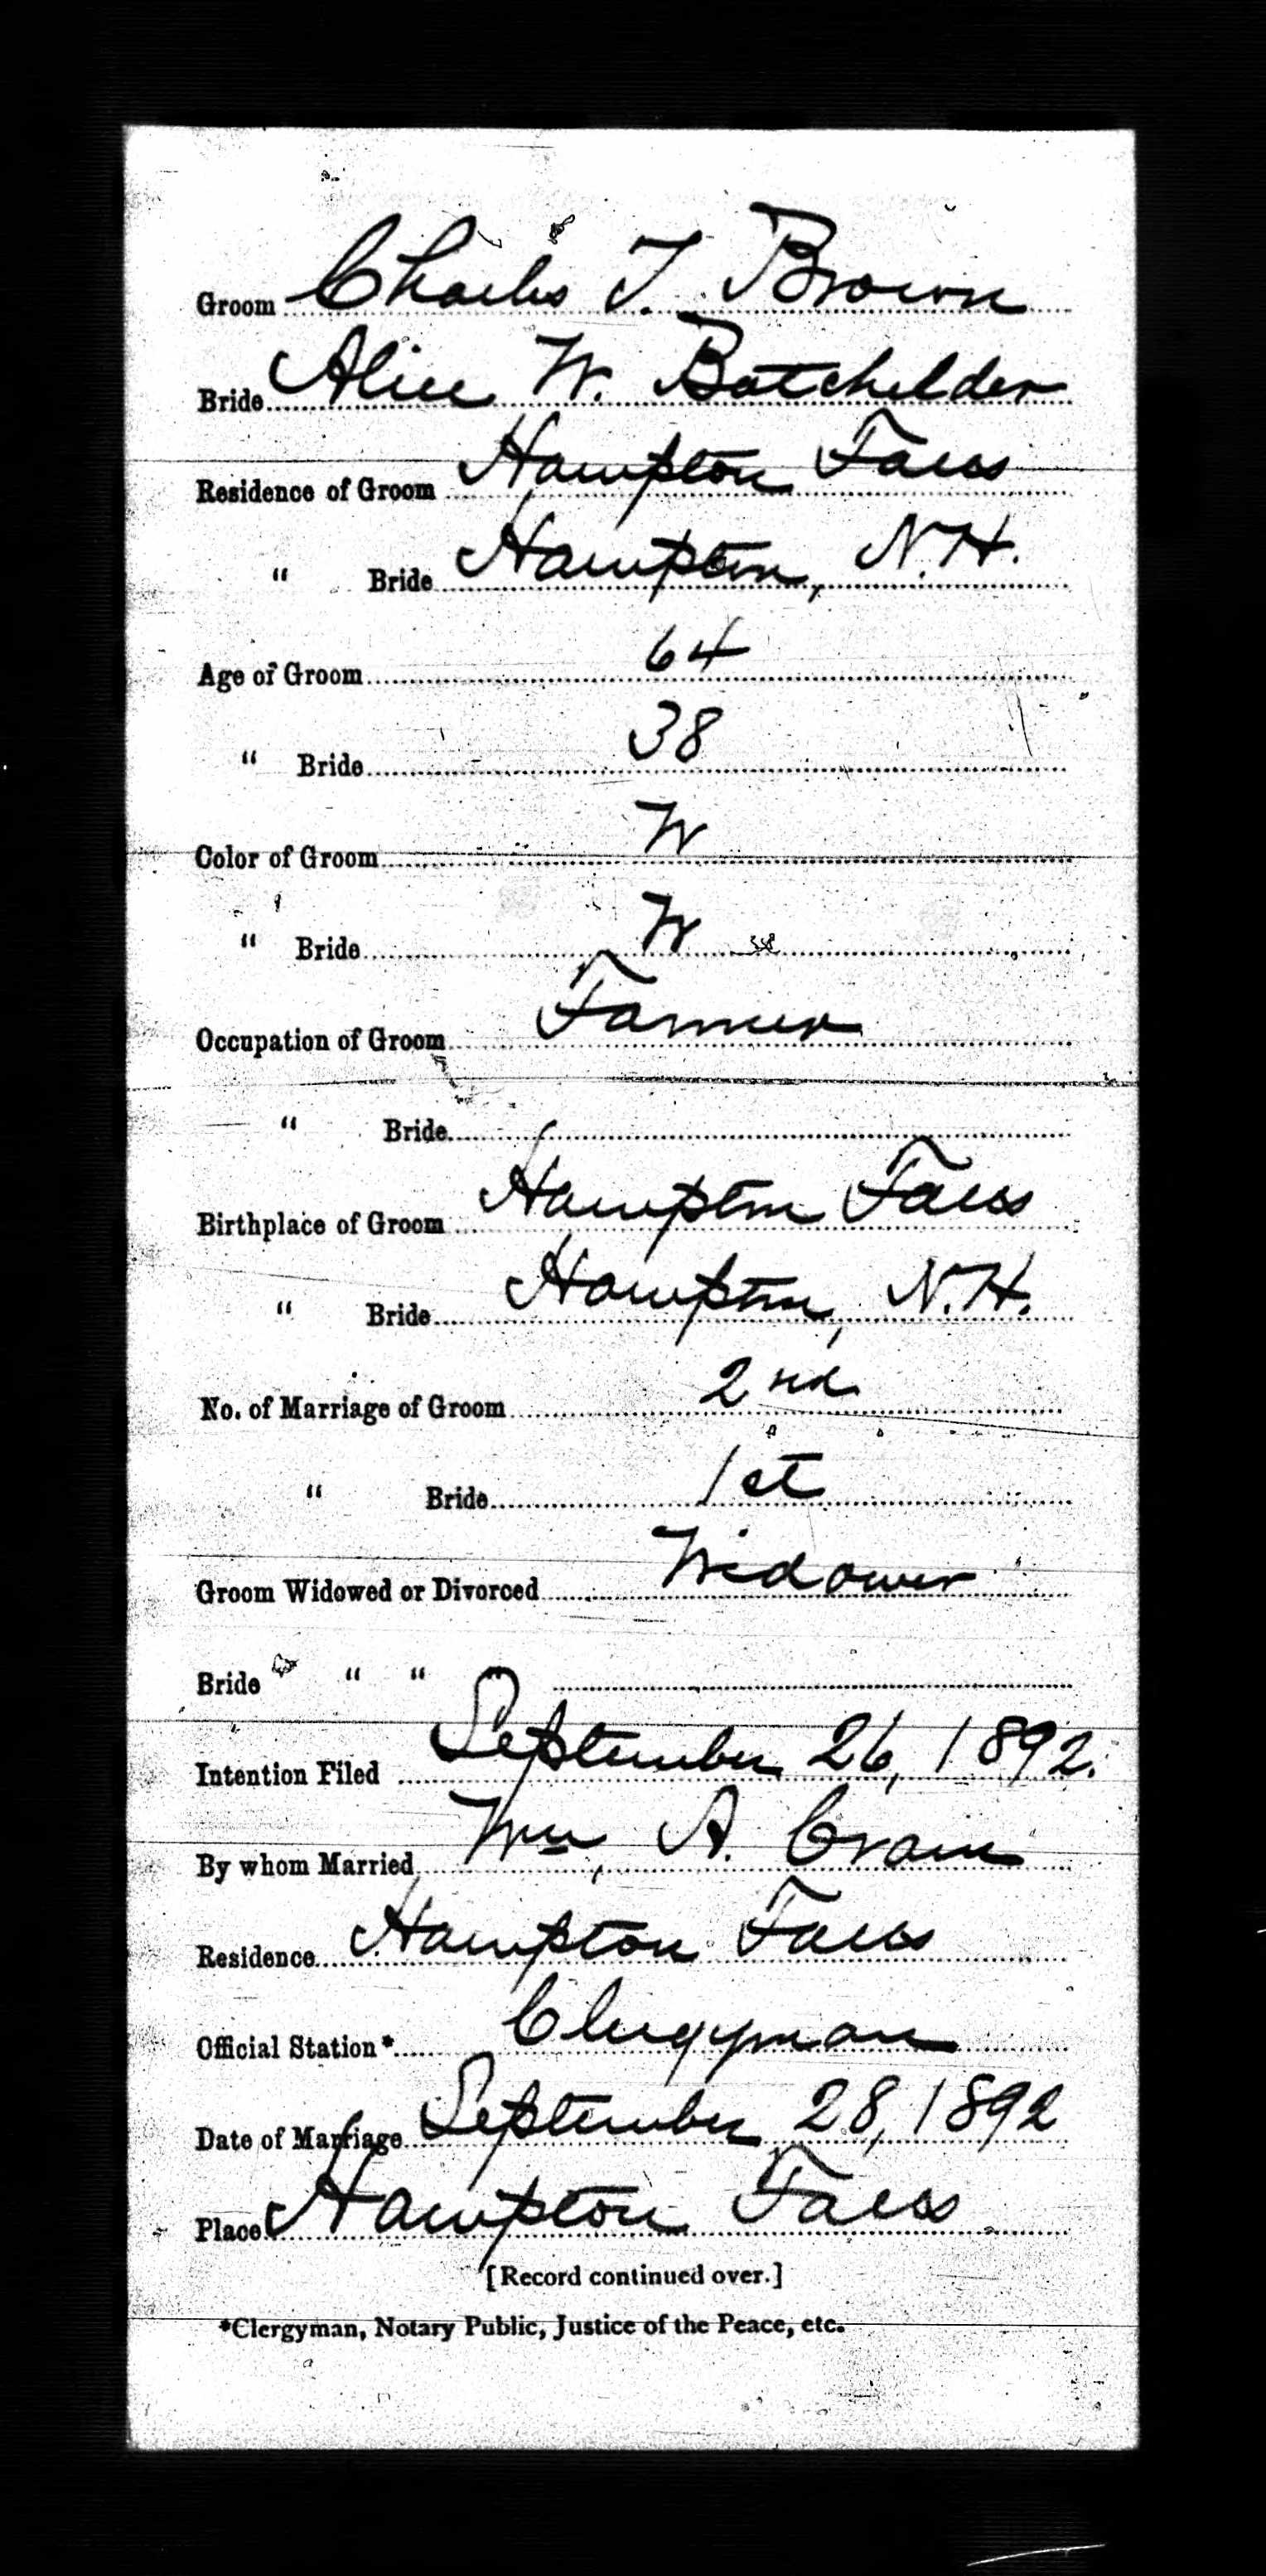 Groom Charles T. Brown
Bride Alice W. Batchelder
Residence of Groom Hampton Falls
" Bride Hampton, N.H.
Age of Groom 64
" Bride 38
Color of Groom W
" Bride W
Occupation of Groom Farmer
" Bride
Birthplace of Groom Hampton Falls
" Bride Hampton, N.H.
No. of Marriage of Groom 2nd
" Bride 1st
Groom Widowed or Divorced Widower
Bride " "
Intention Filed September 26, 1892.
By whom Married Wm A. Cram
Residence Hampton Falls
Official Station* Clergyman
Date of Marriage September 28, 1892
Place Hampton Falls
[Record continued over.]
*Clergyman, Notary Public, Justice of the Peace, etc.